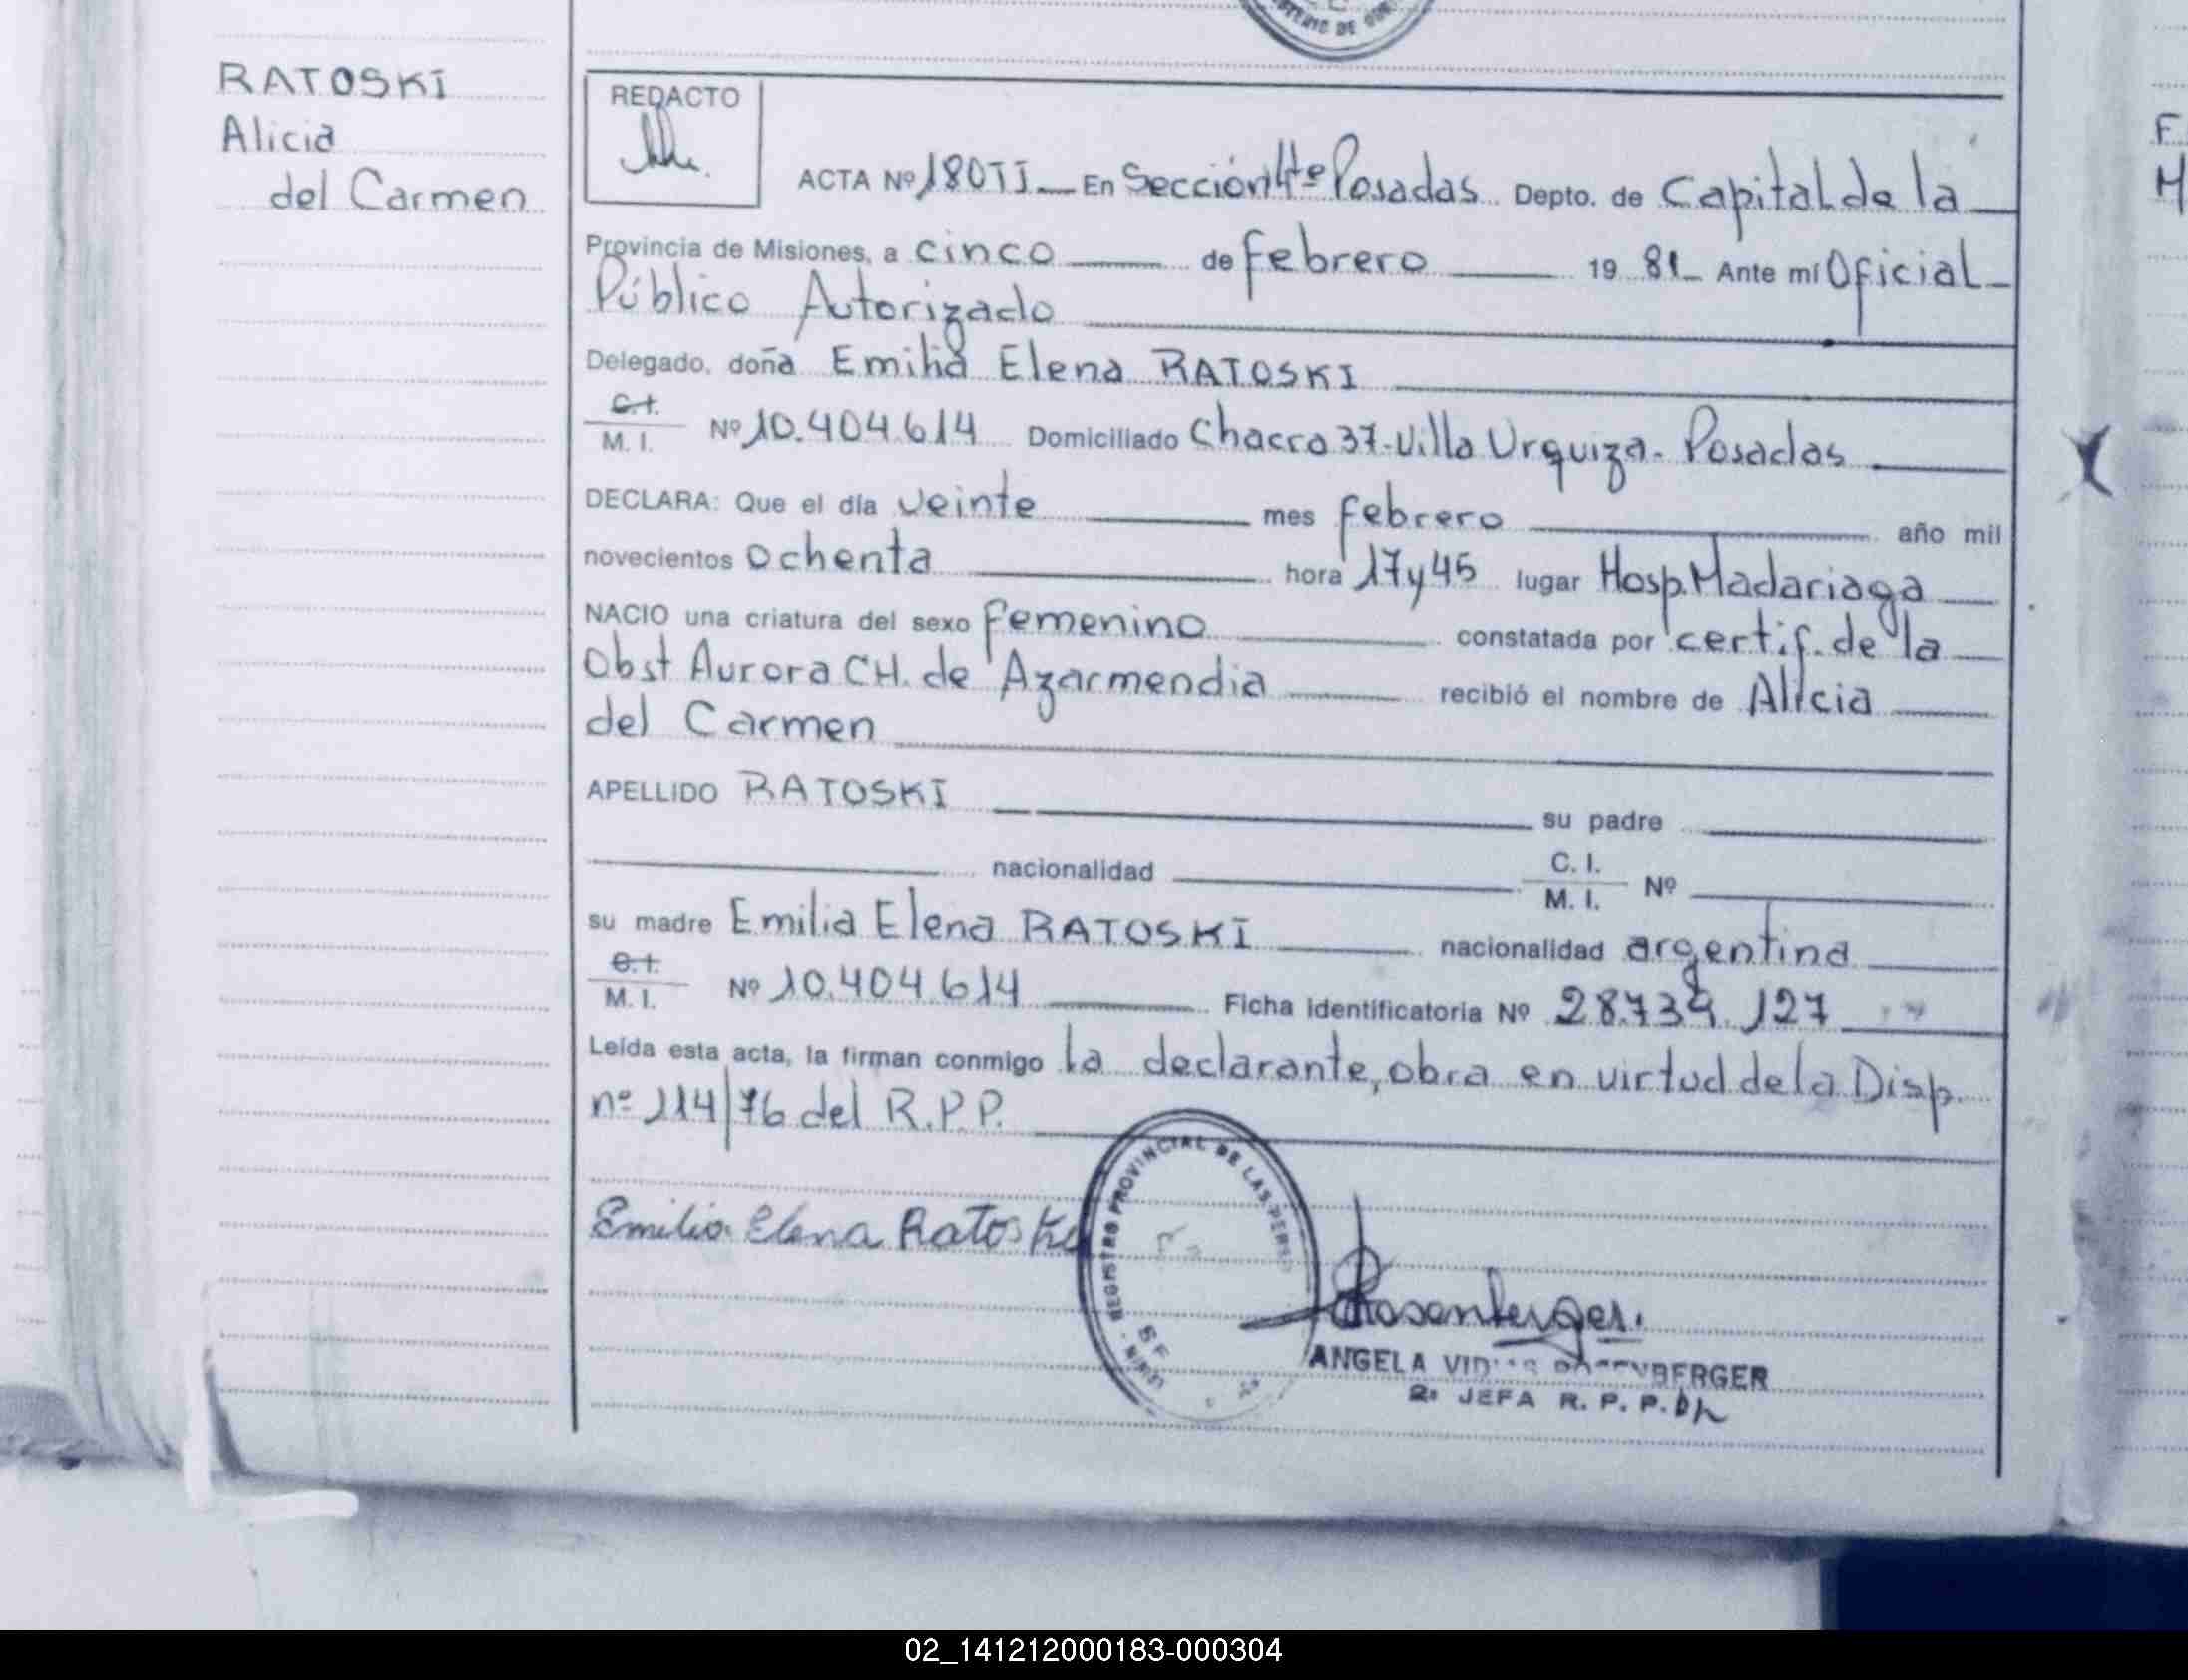 RATOSKI
Alicia
del Carmen
REDACTO
ACTA Nº 180 TI En Sección 4ª Posadas Depto. de Capital de la
Provincia de Misiones, a cinco de febrero 19 81 Ante mí Oficial
Público Autorizado
Delegado, doña Emilia Elena RATOSKI
C.I.
M. I. Nº 10.404.614 Domiciliado Chacra 37-Villa Urquiza- Posadas
DECLARA: Que el día veinte mes febrero año mil
novecientos ochenta hora 17 y 45 lugar Hosp. Madariaga
NACIO una criatura del sexo femenino constatada por certif. de la
Obst Aurora CH. de Azarmendia recibió el nombre de Alicia
del Carmen
APELLIDO RATOSKI su padre
nacionalidad C. I. Nº
M. I.
su madre Emilia Elena RATOSKI nacionalidad argentina
C.I.
M. I. Nº 10.404.614 Ficha identificatoria Nº 28.739.127
Leída esta acta, la firman conmigo la declarante, obra en virtud de la Disp.
nº 114/76 del R.P.P.
REGISTRO PROVINCIAL DE LAS PERS
Emilia Elena Ratoski
Rosenberger.
ANGELA
2º JEFA R. P. P.
F
M
02_141212000183-000304